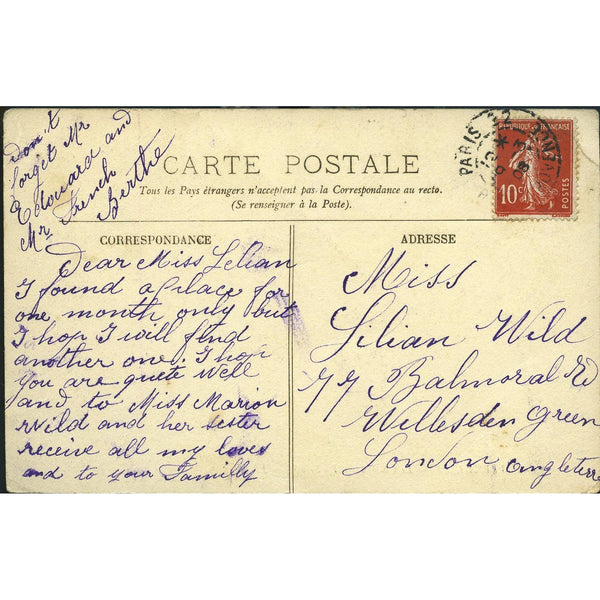 Don't
forget Mr
Edouard and
Mr French
Berthe
CARTE POSTALE
Tous les Pays étrangers n'acceptent pas la Correspondance au recto.
(Se renseigner à la Poste).
CORRESPONDANCE
Dear Miss Lelian
I found a place for
one month only but
I hop I will find
another one. I hop
you are quete well
and to Miss Marion
Wild and her sester
receive all my loves
and to your Familly
ADRESSE
Miss
Lilian Wild
77 Balmoral Rd
Willesden Green
London Angleterre
PARIS 22
REPUBLIQUE FRANÇAISE
10c
POSTES